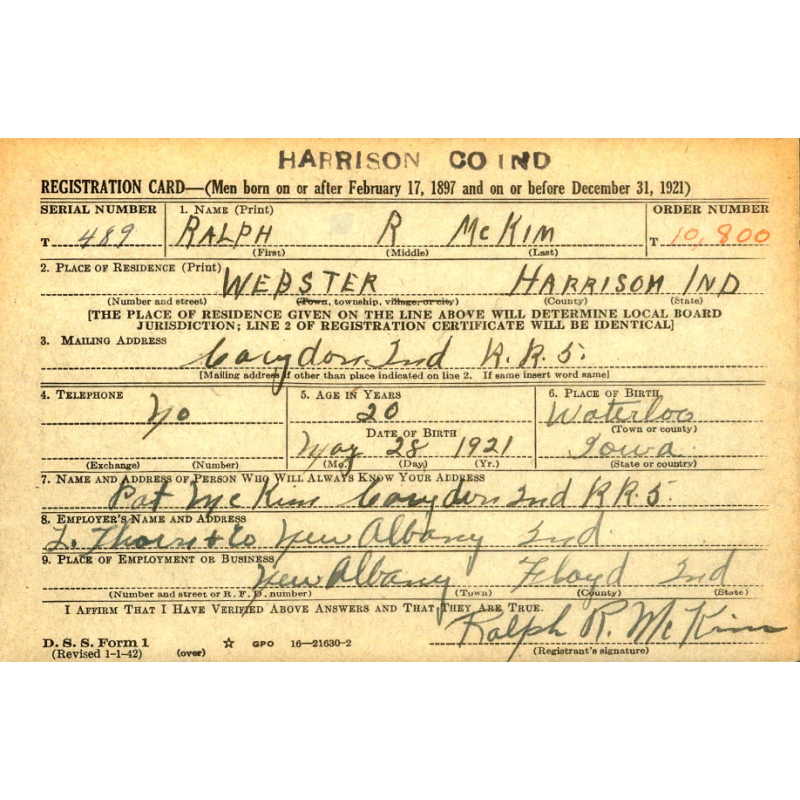 HARRISON CO IND
REGISTRATION CARD—(Men born on or after February 17, 1897 and on or before December 31, 1921)
SERIAL NUMBER 1. NAME (Print) ORDER NUMBER
T 489 RALPH R McKIM T 10,800
(First) (Middle) (Last)
2. PLACE OF RESIDENCE (Print) WEBSTER HARRISON IND
(Number and street) (Town, township, village, or city) (County) (State)
[THE PLACE OF RESIDENCE GIVEN ON THE LINE ABOVE WILL DETERMINE LOCAL BOARD
JURISDICTION; LINE 2 OF REGISTRATION CERTIFICATE WILL BE IDENTICAL]
3. MAILING ADDRESS
Corydon Ind R.R.5.
[Mailing address if other than place indicated on line 2. If same insert word same]
4. TELEPHONE 5. AGE IN YEARS 6. PLACE OF BIRTH
No 20 Waterloo
DATE OF BIRTH (Town or county)
May 28 1921 Iowa
(Exchange) (Number) (Mo.) (Day) (Yr.) (State or country)
7. NAME AND ADDRESS OF PERSON WHO WILL ALWAYS KNOW YOUR ADDRESS
Pat McKim Corydon Ind R.R.5.
8. EMPLOYER'S NAME AND ADDRESS
L. Thorn + Co New Albany Ind.
9. PLACE OF EMPLOYMENT OR BUSINESS
New Albany Floyd Ind
(Number and street or R. F. D. number) (Town) (County) (State)
I AFFIRM THAT I HAVE VERIFIED ABOVE ANSWERS AND THAT THEY ARE TRUE.
Ralph R. McKim
D. S. S. Form 1
(Revised 1-1-42) (over) ☆ GPO 16—21630-2 (Registrant's signature)